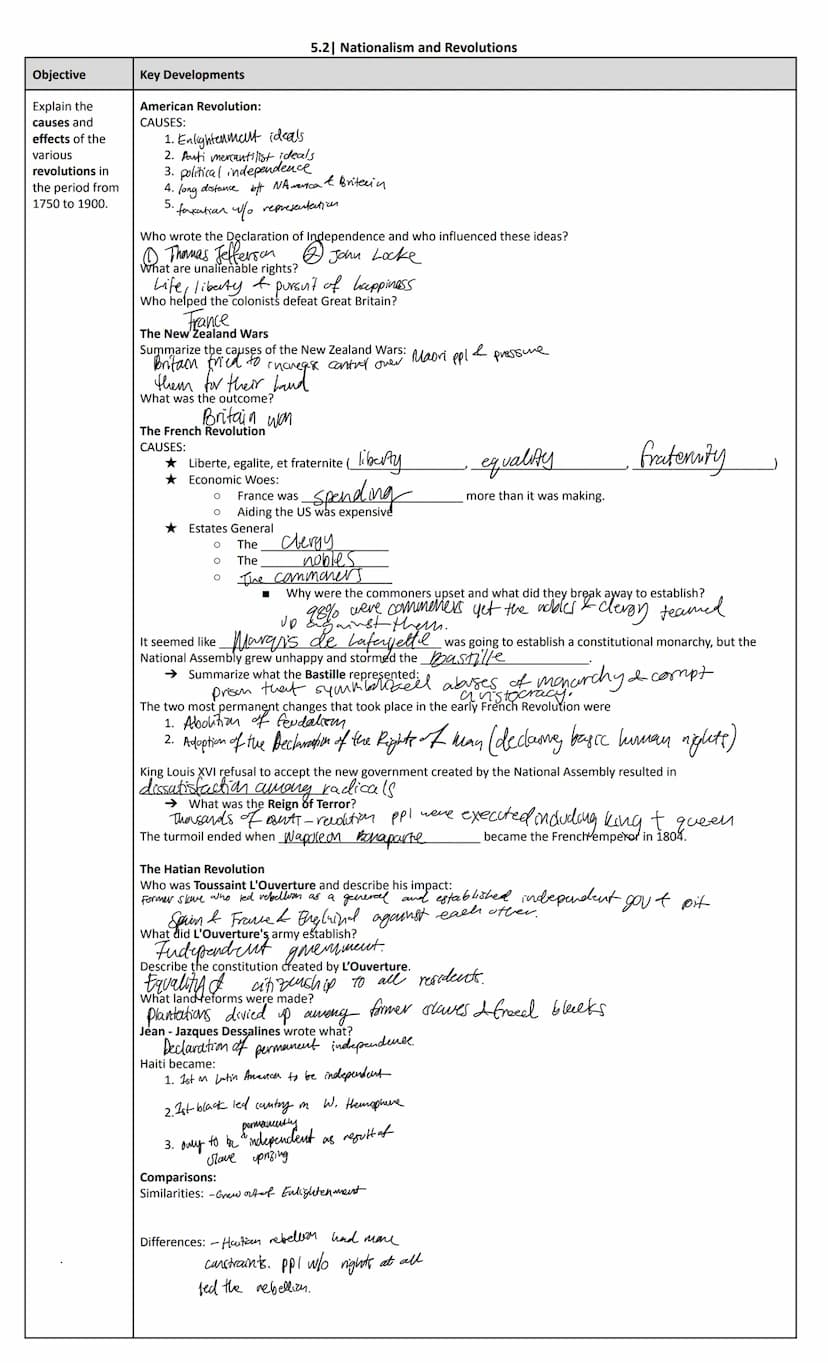 5.2| Nationalism and Revolutions
Objective
Key Developments
Explain the
causes and
effects of the
various
revolutions in
the period from
1750 to 1900.
American Revolution:
CAUSES:
1. Enlightenment ideals
2. Anti mercantilist ideals
3. political independence
4. long distance btt NAmerica & Britain
5. taxation w/o representation
Who wrote the Declaration of Independence and who influenced these ideas?
① Thomas Jefferson ② John Locke
What are unalienable rights?
Life, liberty & pursuit of happiness
Who helped the colonists defeat Great Britain?
France
The New Zealand Wars
Summarize the causes of the New Zealand Wars: Maori ppl & pressure
Britain tried to increase control over
them for their land
What was the outcome?
Britain won
The French Revolution
CAUSES:
★ Liberte, egalite, et fraternite ( liberty , equality , fraternity )
★ Economic Woes:
○ France was spending more than it was making.
○ Aiding the US was expensive
★ Estates General
○ The clergy
○ The nobles
○ The commoners
■ Why were the commoners upset and what did they break away to establish?
98% were commoners yet the nobles & clergy teamed
up against them.
It seemed like Marqis de Lafayette was going to establish a constitutional monarchy, but the
National Assembly grew unhappy and stormed the Bastille .
➔ Summarize what the Bastille represented:
prison that symbolized abuses of monarchy & corrupt
aristocracy.
The two most permanent changes that took place in the early French Revolution were
1. Abolition of feudalism
2. Adoption of the Declaration of the Rights of Man (declaring basic human rights)
King Louis XVI refusal to accept the new government created by the National Assembly resulted in
dissatisfaction among radicals
➔ What was the Reign of Terror?
Thousands of anti-revolution ppl were executed including king + queen
The turmoil ended when Napoleon Bonaparte became the French emperor in 1804.
The Hatian Revolution
Who was Toussaint L'Ouverture and describe his impact:
Former slave who led rebellion as a general and established independent gov + pit
Spain & France & England against each other.
What did L'Ouverture's army establish?
Independent government.
Describe the constitution created by L’Ouverture.
Equality & citizenship to all residents.
What land reforms were made?
Plantations divied up among former slaves & freed blacks
Jean - Jazques Dessalines wrote what?
Declaration of permanent independence
Haiti became:
1. 1st in Latin American to be independent
2. 1st black led country in W. Hemisphere
permanently
3. only to be independent as result of
slave uprizing
Comparisons:
Similarities: - Grew out of Enlightenment
Differences: - Haitian rebellion had more
constraints. ppl w/o rights at all
led the rebellion.